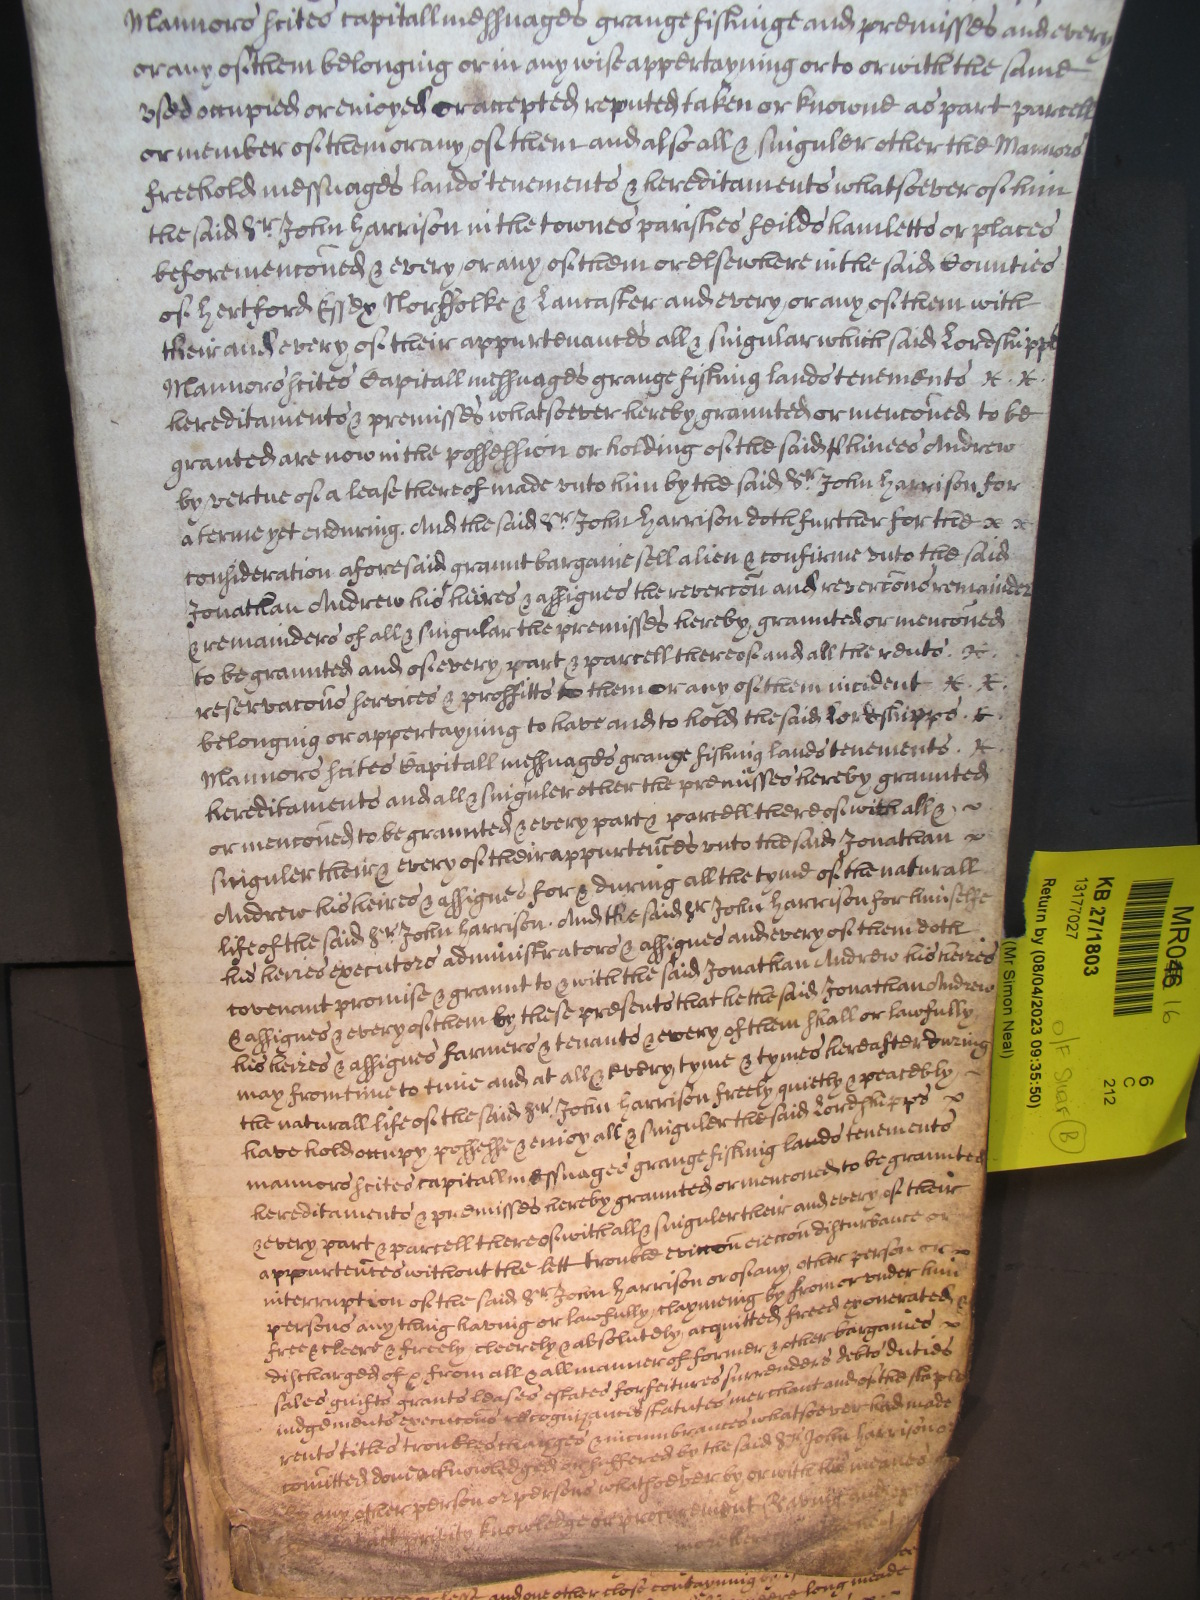 Mannors scites capitall messuages grange fishinge and premisses and every
or any of them belonging or in any wise appertayning or to or with the same
used occupied or enioyed or accepted reputed taken or knowne as part parcell
or member of them or any of them and also all & singuler other the Mannors
freehold messuages lands tenements & hereditaments whatsoever of him
the said Sr. John Harrison in the townes parishes feilds hamletts or places
beforemenconed & every or any of them or elsewhere in the said Counties
of Hertford Essex Norffolke & Lancaster and every or any of them with
their and every of their appurtenances all & singular which said Lordshipps
Mannors scites Capitall messuages grange fishing lands tenements
hereditaments & premisses whatsoever hereby graunted or menconed to be
granted are now in the possession or holding of the said Phinees Andrew
by vertue of a lease thereof made unto him by the said Sr. John Harrison for
a terme yet enduring. And the said Sr. John Harrison doth further for the
consideration aforesaid graunt bargaine sell alien & confirme unto the said
Jonathan Andrew his heires & assignes the revercon and revercons remainder
& remainders of all & singular the premisses hereby graunted or menconed
to be graunted and of every part & parcell thereof and all the rents
reservacons services & proffitts to them or any of them incident
belonging or appertayning to have and to hold the said Lordshipps
Mannors scites Capitall messuages grange fishing lands tenements
hereditaments and all & singuler other the premisses hereby graunted
or menconed to be graunted & every part & parcell thereof with all &
singuler their & every of their appurtences unto the said Jonathan
Andrew his heires & assignes for & during all the tyme of the naturall
life of the said Sr. John Harrison. And the said Sr John Harrison for himselfe
his heires executors administrators & assignes and every of them doth
covenant promise & graunt to & with the said Jonathan Andrew his heires
& assignes & every of them by these presents that he the said Jonathan Andrew
his heires & assignes farmers & tenants & every of them shall or lawfully
may from time to time and at all & every tyme & tymes hereafter during
the naturall life of the said Sr. John Harrison freely quietly & peaceably
have hold occupy possesse & enioy all & singuler the said Lordshipps
mannors scites capitall messuages grange fishing lands tenements
hereditaments & premisses hereby graunted or menconed to be graunted
& every part & parcell thereof with all & singuler their and every of their
appurtences without the lett trouble eviccon eieccon disturbance or
interruption of the said Sr John Harrison or of any other person or
persons any thing having or lawfully clayming by from or under him
free & cleere & freely cleerely & absolutely acquitted freed exonerated &
discharged of & from all & all manner of former & other bargaines
sales guifts grants leases estates forfeitures surrenders debts duties
iudgements execucons recognizances statutes merchant and of the staple
rents titles troubles charges & incumbrances whatsoever had made
comitted done acknowledged or suffered by the said Sr John Harrison or
by any other person or persons whatsoever by or with his meanes
privity knowledge or procurement
and one other close contayning
long meade
MR046 16
KB 27/1803
13177027
Return by (08/04/2023 09:35:50)
(Mr Simon Neal)
6
C
212
B